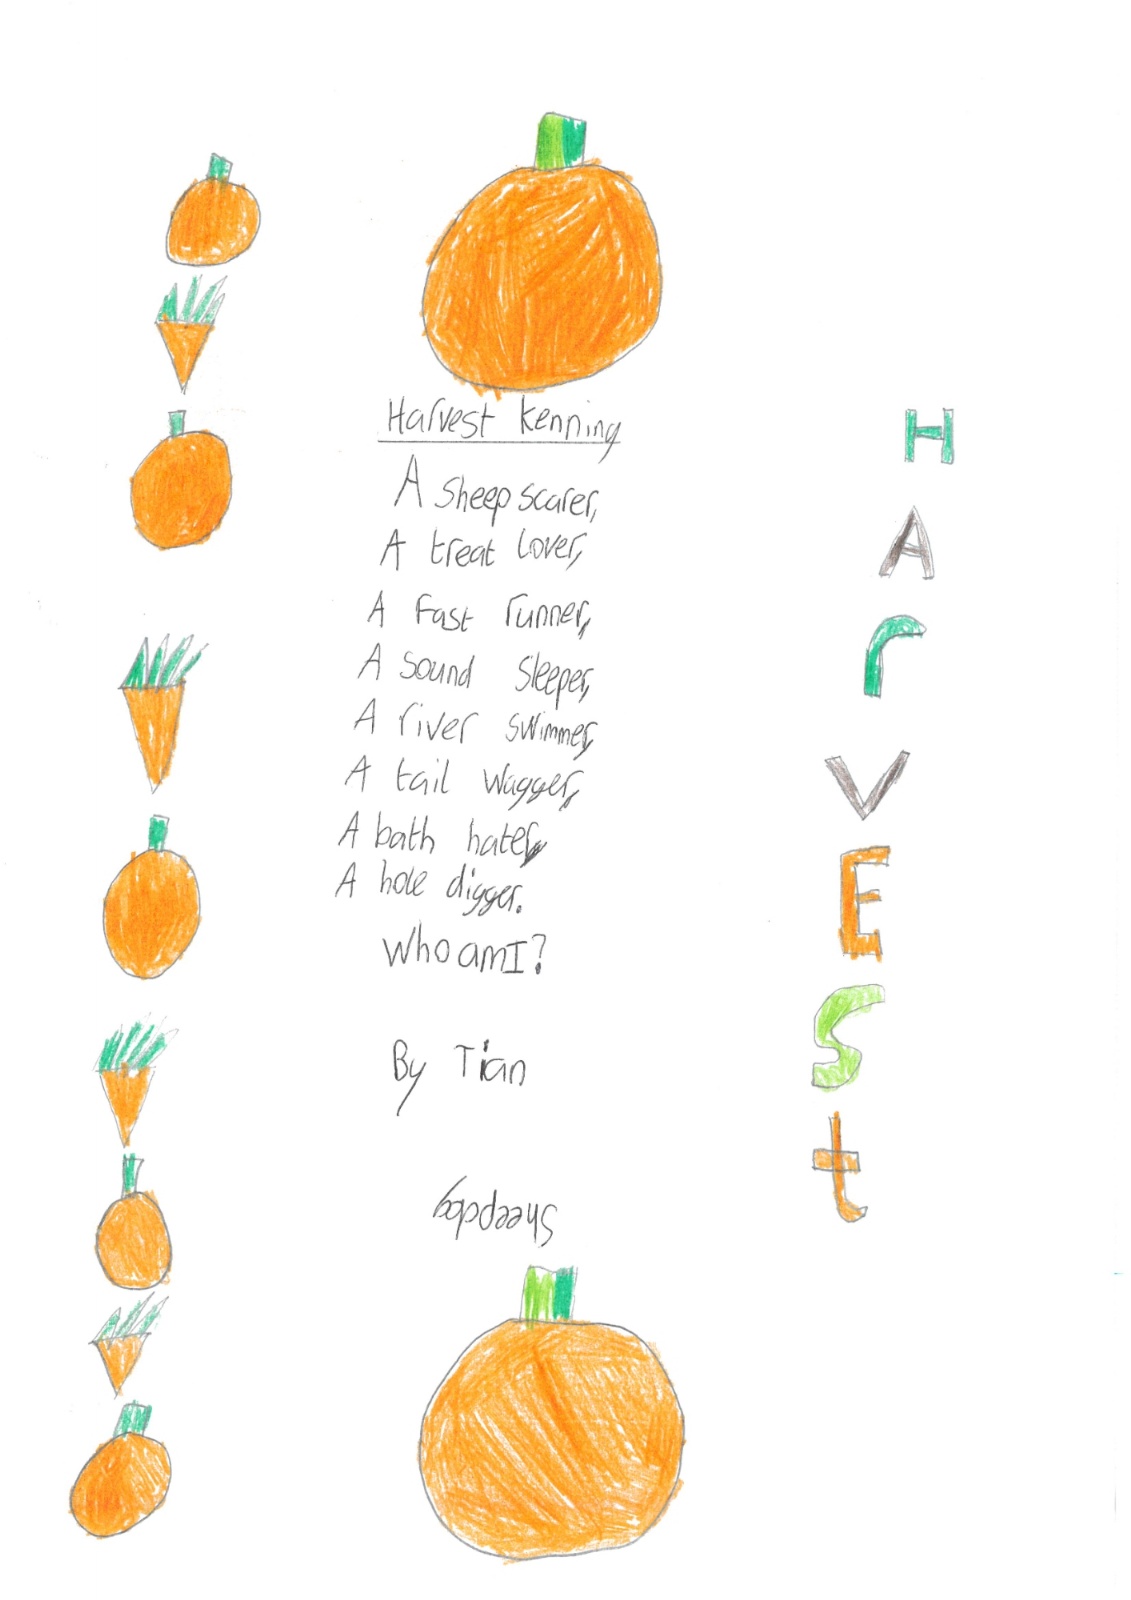 Harvest kenning
A sheep scarer,
A treat lover,
A fast runner,
A sound sleeper,
A river swimmer,
A tail wagger,
A bath hater,
A hole digger.
Who am I?
By Tian
Sheepdog
H
A
r
V
E
S
t